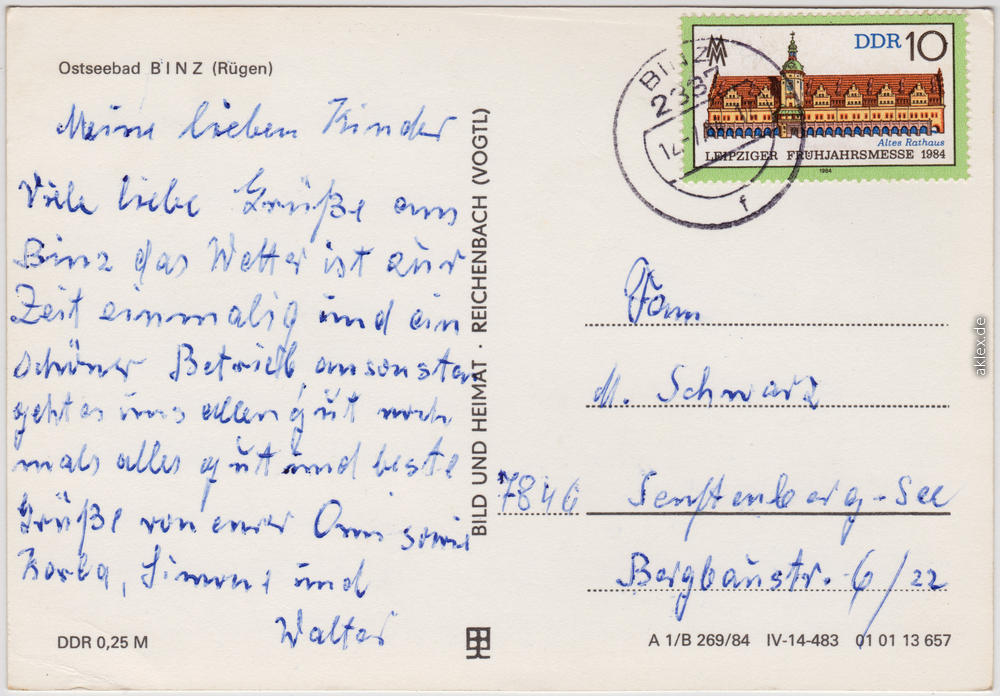 Ostseebad BINZ (Rügen)
Meine lieben Kinder
Viele liebe Grüße aus
Binz das Wetter ist zur
Zeit einmalig und ein
schöner Betrieb ansonsten
geht es uns allen gut noch
mals alles gut und beste
Grüße von eurer Omi sowie
Simone und
Walter
DDR 0,25 M
BILD UND HEIMAT · REICHENBACH (VOGTL)
DDR 10
Altes Rathaus
LEIPZIGER FRÜHJAHRSMESSE 1984
1984
BINZ
2337
12.-7.
f
Fam
M. Schwarz
7840 Senftenberg-See
Bergbaustr. 6/22
A 1/B 269/84 IV-14-483 01 01 13 657
aklex.de